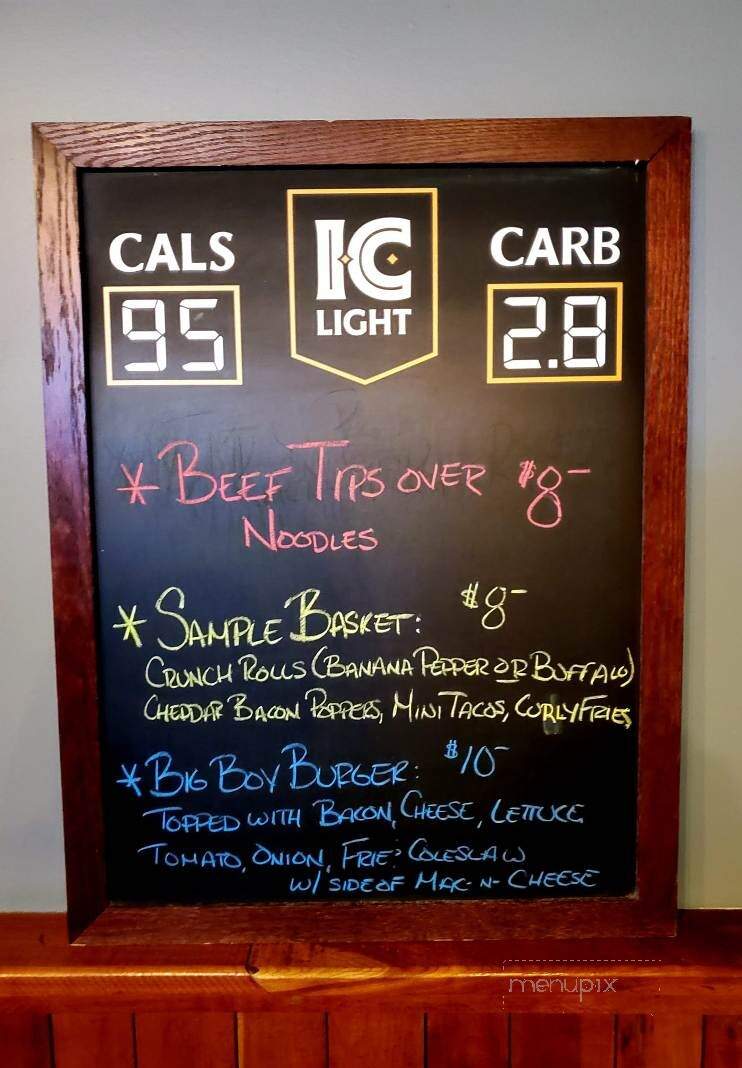 CALS
95
IC
LIGHT
CARB
2.8
* BEEF TIPS OVER $8-
NOODLES
* SAMPLE BASKET: $8-
CRUNCH ROLLS (BANANA PEPPER OR BUFFALO)
CHEDDAR BACON POPPERS, MINI TACOS, CURLY FRIES
* BIG BOY BURGER: $10-
TOPPED WITH BACON, CHEESE, LETTUCE
TOMATO, ONION, FRIE? COLESLAW
W/ SIDE OF MAC-N-CHEESE
menupix